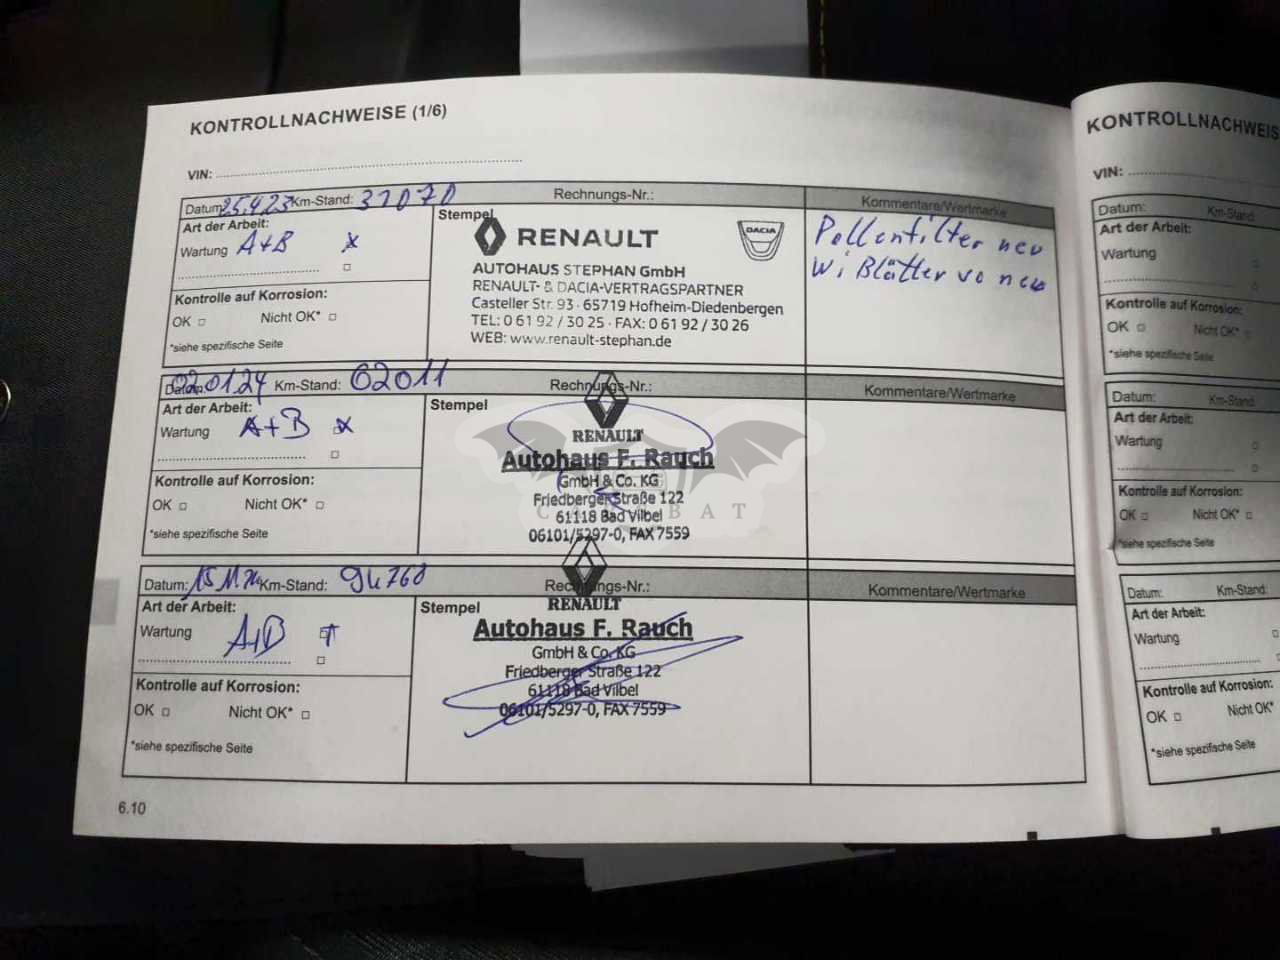 KONTROLLNACHWEISE (1/6)
VIN:
Datum: 25.4.23 Km-Stand: 31070 Rechnungs-Nr.: Kommentare/Wertmarke
Art der Arbeit:
Wartung A+B x
Kontrolle auf Korrosion:
OK Nicht OK*
*siehe spezifische Seite
Stempel
RENAULT DACIA
AUTOHAUS STEPHAN GmbH
RENAULT- & DACIA-VERTRAGSPARTNER
Casteller Str. 93 · 65719 Hofheim-Diedenbergen
TEL: 0 61 92 / 30 25 · FAX: 0 61 92 / 30 26
WEB: www.renault-stephan.de
Pollenfilter neu
Wi Blätter vo neu
Datum: 02.01.24 Km-Stand: 62011 Rechnungs-Nr.: Kommentare/Wertmarke
Art der Arbeit:
Wartung A+B x
Kontrolle auf Korrosion:
OK Nicht OK*
*siehe spezifische Seite
Stempel
RENAULT
Autohaus F. Rauch
GmbH & Co. KG
Friedberger Straße 122
61118 Bad Vilbel
06101/5297-0, FAX 7559
CARABAT
Datum: 15.11.24 Km-Stand: 94768 Rechnungs-Nr.: Kommentare/Wertmarke
Art der Arbeit:
Wartung A+B
Kontrolle auf Korrosion:
OK Nicht OK*
*siehe spezifische Seite
Stempel
RENAULT
Autohaus F. Rauch
GmbH & Co. KG
Friedberger Straße 122
61118 Bad Vilbel
06101/5297-0, FAX 7559
6.10
KONTROLLNACHWEIS
VIN:
Datum: Km-Stand:
Art der Arbeit:
Wartung
Kontrolle auf Korrosion:
OK Nicht OK*
*siehe spezifische Seite
Datum: Km-Stand:
Art der Arbeit:
Wartung
Kontrolle auf Korrosion:
OK Nicht OK*
*siehe spezifische Seite
Datum: Km-Stand:
Art der Arbeit:
Wartung
Kontrolle auf Korrosion:
OK Nicht OK*
*siehe spezifische Seite